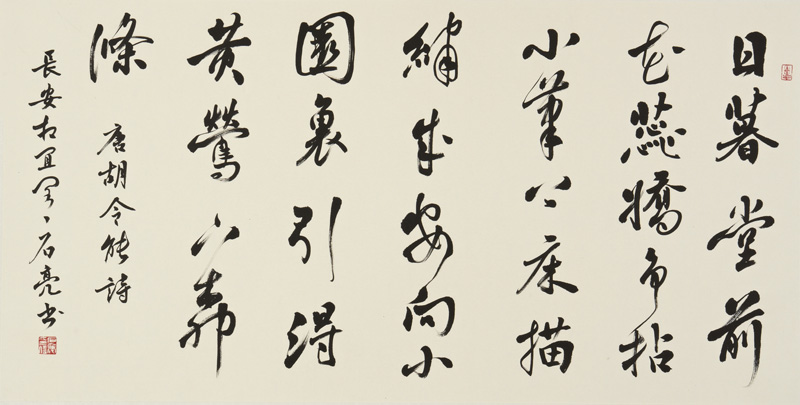 日暮堂前
花蕊嬌爭拈
小筆上床描
繡成安向小
園裏引得
黃鶯下柳
條
唐胡令能詩
長安相宜閣石亮书